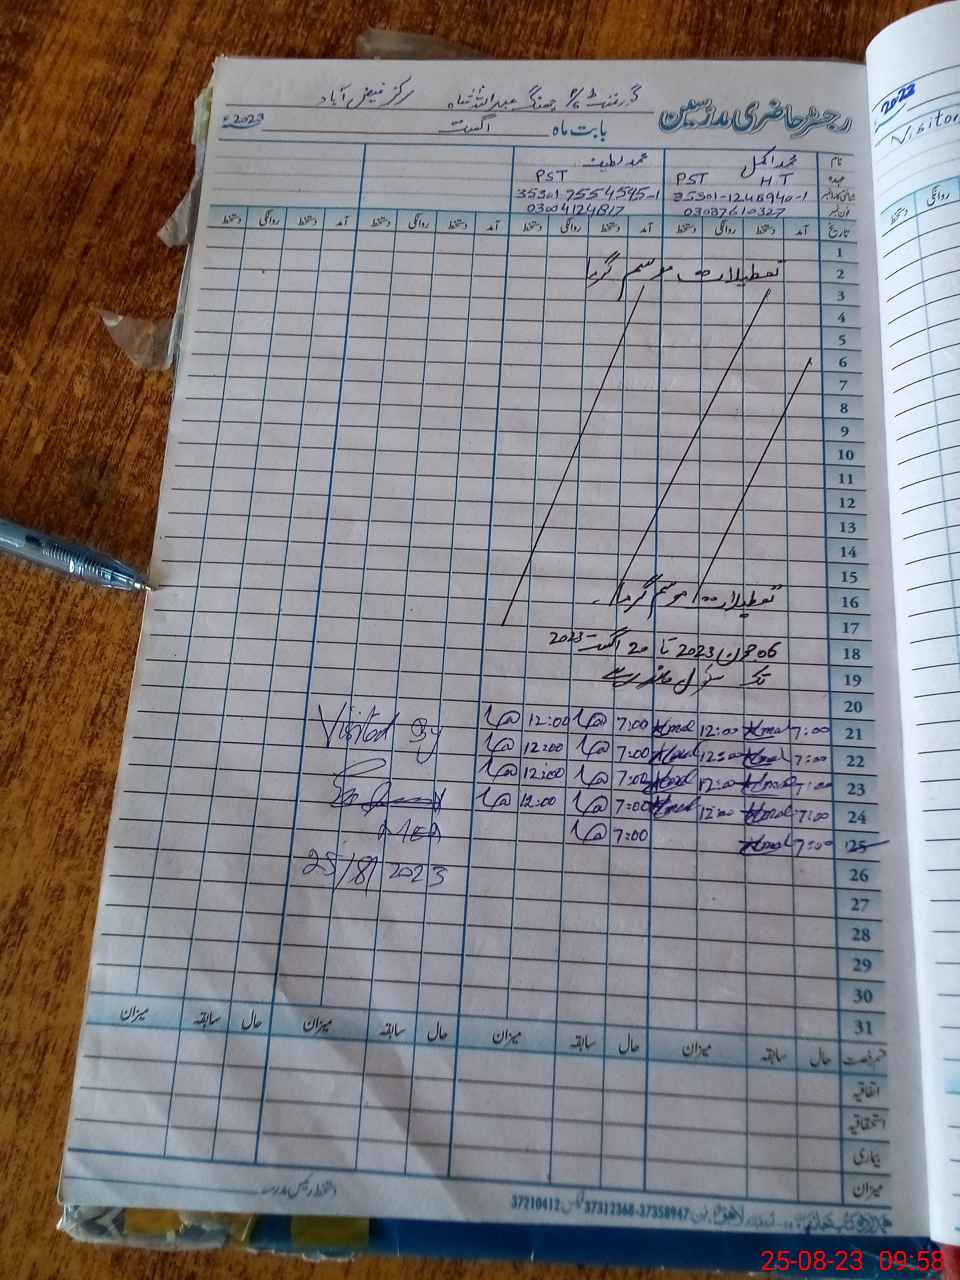 رجسٹر حاضری مدرسین
گورنمنٹ جھنگڑ عبداللہ شاہ مرکز فیض آباد
بابت ماہ اگست 2023ء
نام محمد اکمل محمد لطیف
عہدہ H T PST PST
35301-1246940-1 35301-7554595-1
فون نمبر 03037610327 03004124817
تاریخ آمد دستخط روانگی دستخط آمد دستخط روانگی دستخط آمد دستخط روانگی دستخط آمد دستخط روانگی دستخط
1
2 تعطیلات موسم گرما
3
4
5
6
7
8
9
10
11
12
13
14
15
16 تعطیلات موسم گرما
17
18 06 جون 2023 تا 20 اگست 2023
19 تک سکول
20
21 7:00 Akmal 12:00 Akmal 7:00 12:00
22 7:00 Akmal 12:00 Akmal 7:00 12:00
23 7:00 Akmal 12:00 Akmal 7:00 12:00
24 7:00 Akmal 12:00 Akmal 7:00 12:00
25 7:00 Akmal 7:00
26
27
28
29
30
31
Visited By
25/8/2023
قسم رخصت حال سابقہ میزان حال سابقہ میزان حال سابقہ میزان حال سابقہ میزان
اتفاقیہ
استحقاقیہ
بیماری
میزان
دستخط رئیس مدرسہ
37210412 فیکس 37312368-37358947 فون
2023
Visitor
روانگی
دستخط
25-08-23 09:58